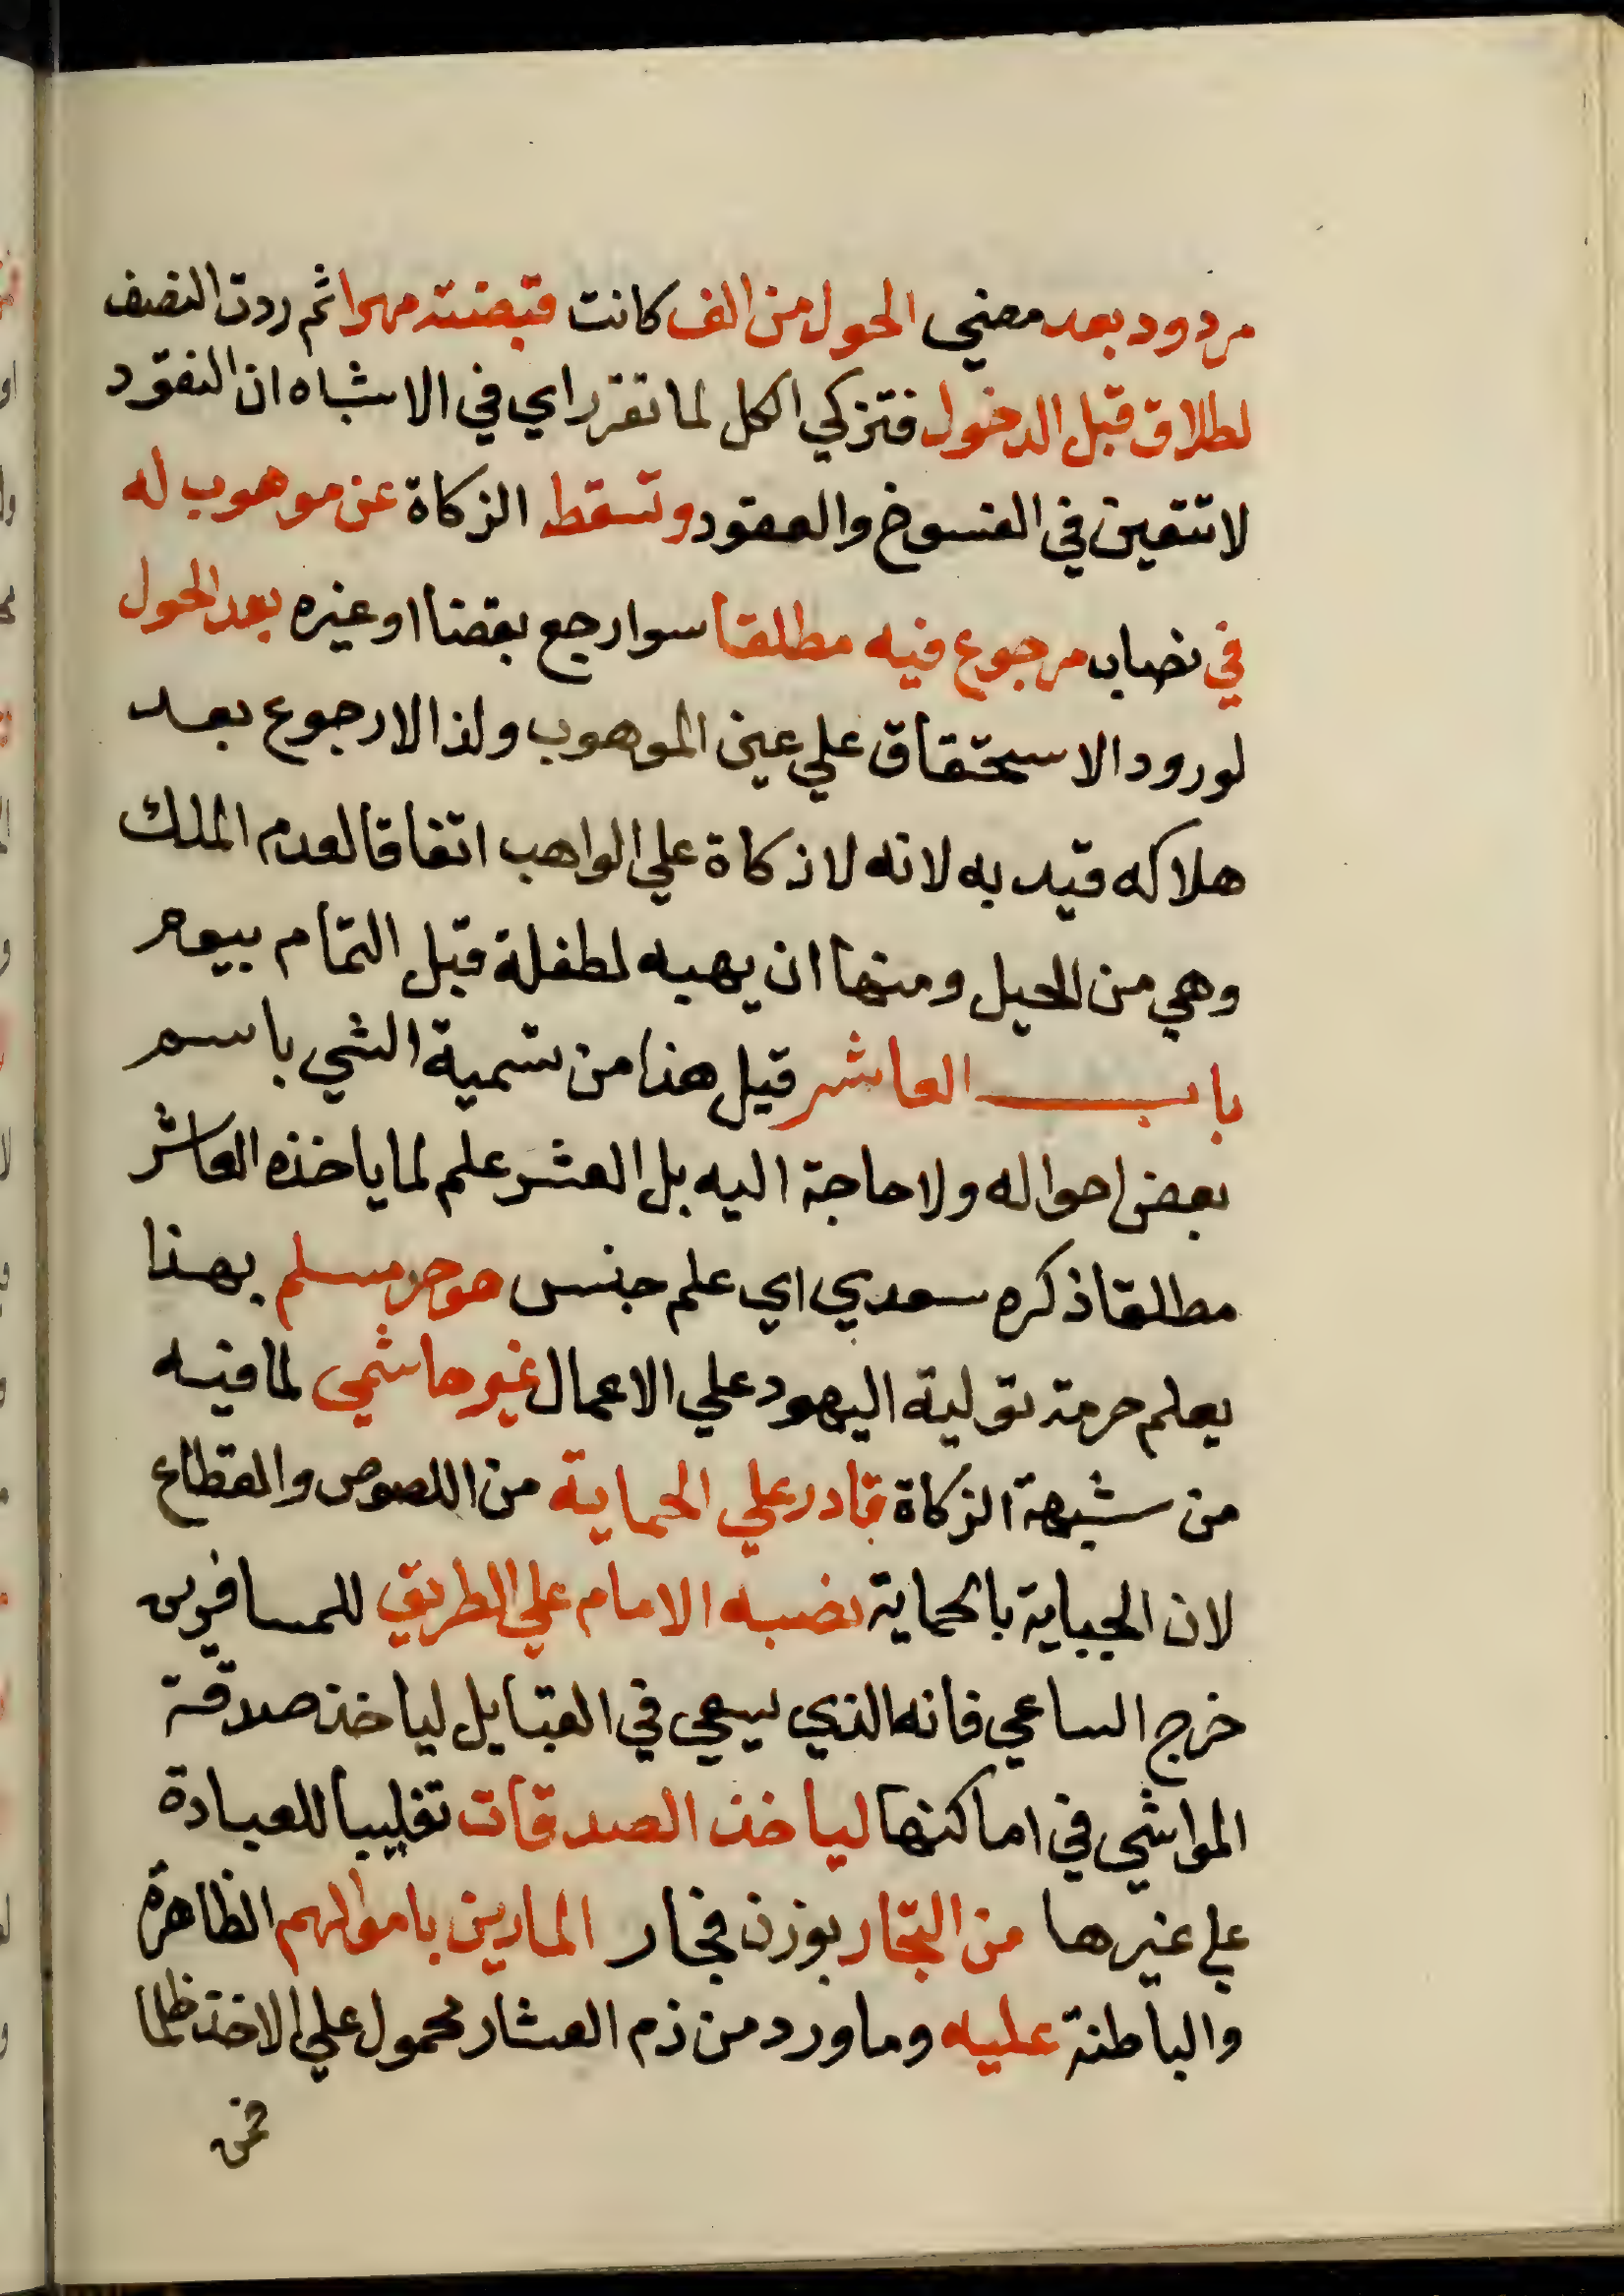 مردود بعد مضي الحول من الف كانت قبضته مهرا ثم ردت النصف
لطلاق قبل الدخول فتزكي الكل لما تقرر اي في الاشباه ان النقود
لا تتعين في الفسوخ والعقود وتسقط الزكاة عن موهوب له
في نصاب مرجوع فيه مطلقا سوا رجع بقضا او غيره بعد الحول
لورود الاستحقاق علي عين الموهوب ولذا لا رجوع بعد
هلاكه قيد به لانه لا زكاة علي الواهب اتفاقا لعدم الملك
وهي من الحيل ومنها ان يهبه لطفلة قبل التمام بيوم
باب العاشر قيل هذا من تسمية الشي باسم
بعض احواله ولا حاجة اليه بل العشر علم لما ياخذه العاشر
مطلقا ذكره سعدي اي علم جنس هو حر مسلم بهذا
يعلم حرمة تولية اليهود علي الاعمال غير هاشمي لما فيه
من شبهة الزكاة قادر علي الحماية من اللصوص والقطاع
لان الجباية بالحماية نصبه الامام علي الطريق للمسافرين
خرج الساعي فانه الذي يسعي في القبايل لياخذ صدقة
المواشي في اماكنها لياخذ الصدقات تغليبا للعبادة
علي غيرها من التجار بوزن فجار المارين باموالهم الظاهرة
والباطنة عليه وما ورد من ذم العشار محمول علي الاخذ ظلما